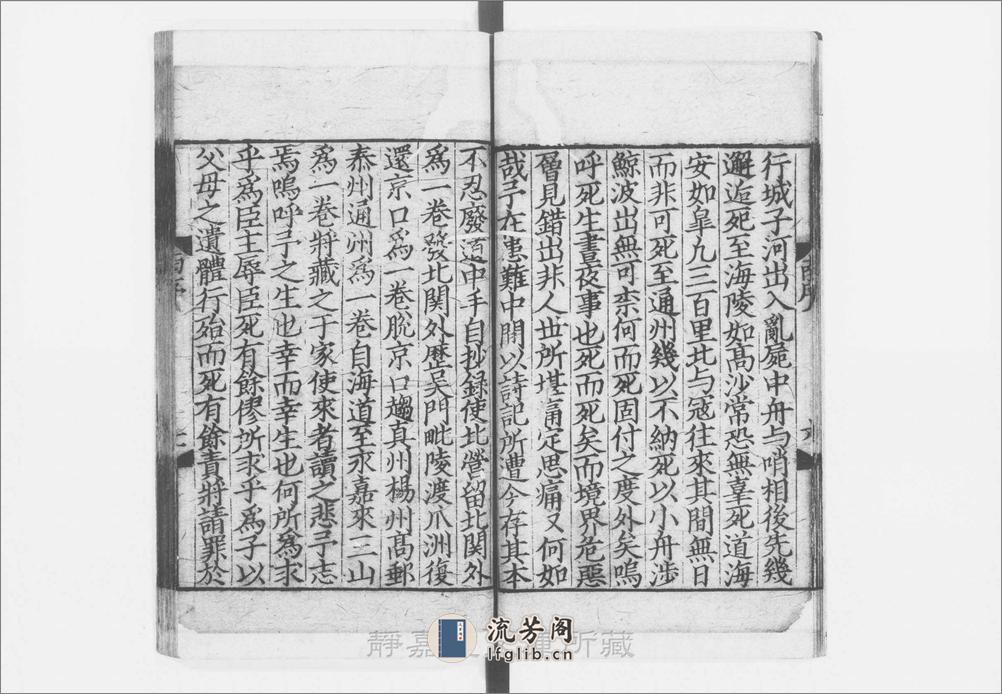 行城子河出入亂屍中舟与哨相後先幾
邂逅死至海陵如高沙常恐無辜死道海
安如皐凡三百里北与寇往來其間無日
而非可死至通州幾以不納死以小舟涉
鯨波出無可柰何而死固付之度外矣嗚
呼死生晝夜事也死而死矣而境界危惡
層見錯出非人世所堪痛定思痛痛又何如
哉予在患難中間以詩記所遭今存其本
不忍廢道中手自抄録使北營留北関外
爲一卷發北関外歷吴門毗陵渡瓜洲復
還京口爲一卷脫京口趨真州楊州高郵
泰州通州爲一卷自海道至永嘉來三山
爲一卷將藏之于家使來者讀之悲予志
焉嗚呼予之生也幸而幸生也何所爲求
乎爲臣主辱臣死有餘僇所求乎爲子以
父母之遺體行殆而死有餘責將請罪於
靜嘉 所藏
流芳阁
lfglib.cn